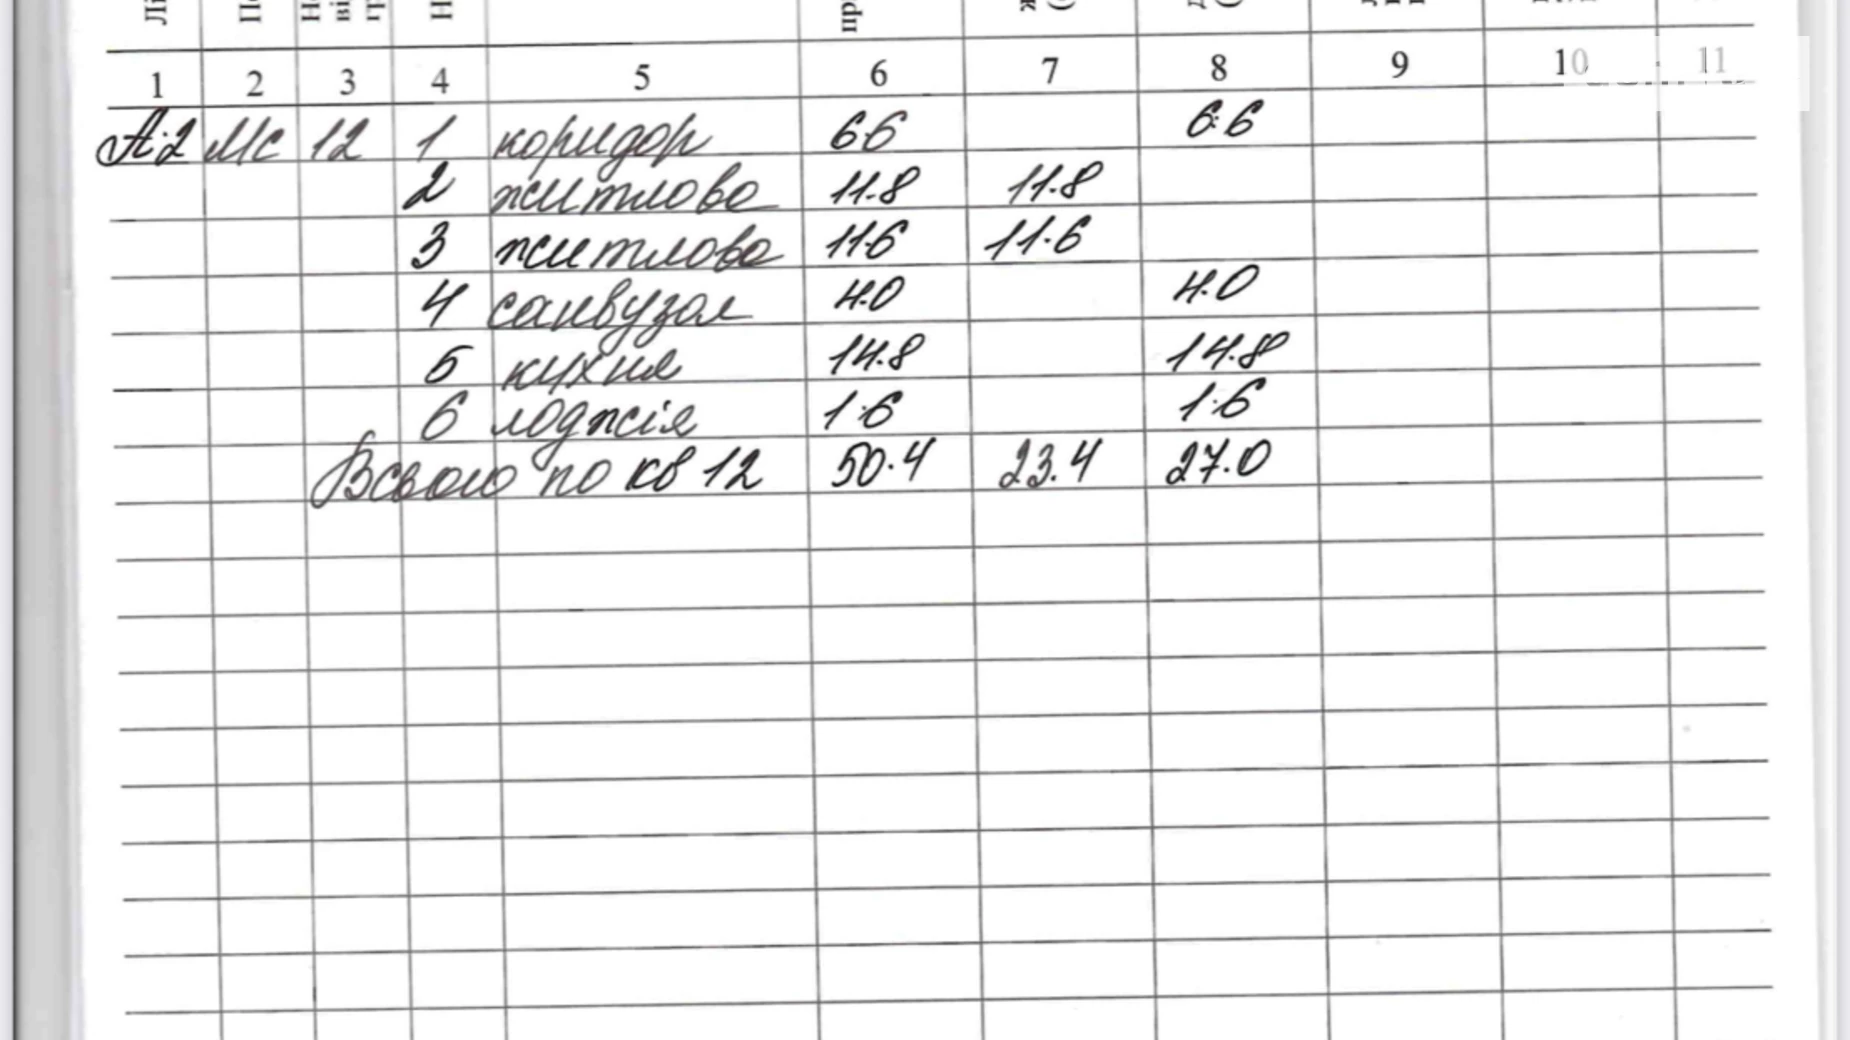 1 2 3 4 5 6 7 8 9 10 11
А-2 Мс 12 1 коридор 6.6 6.6
2 житлова 11.8 11.8
3 житлова 11.6 11.6
4 санвузол 4.0 4.0
5 кухня 14.8 14.8
6 лоджія 1.6 1.6
Всього по кв 12 50.4 23.4 27.0